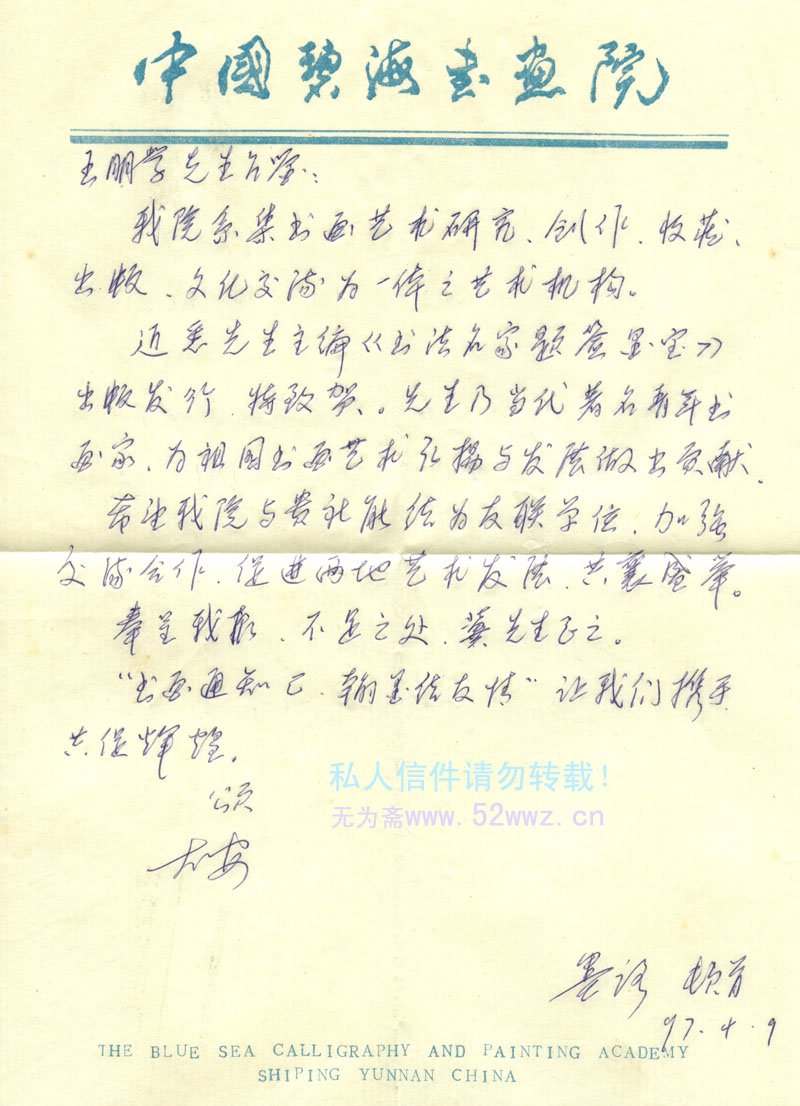 中國碧海书画院
王明学先生台鉴：
我院系集书画艺术研究、创作、收藏、
出版、文化交流为一体之艺术机构。
近悉先生主编《书法名家题签墨宝》
出版发行，特致贺。先生乃当代著名青年书
画家，为祖国书画艺术弘揚与发展做出贡献。
希望我院与贵社能结为友联单位，加强
交流合作，促进两地艺术发展，共襄盛举。
奉呈我报，不足之处，冀先生正之。
“书画通知己，翰墨结友情”让我们携手
共促辉煌。
颂
大安
墨语 顿首
97.4.9
私人信件请勿转载！
无为斋www.52wwz.cn
THE BLUE SEA CALLIGRAPHY AND PAINTING ACADEMY
SHIPING YUNNAN CHINA